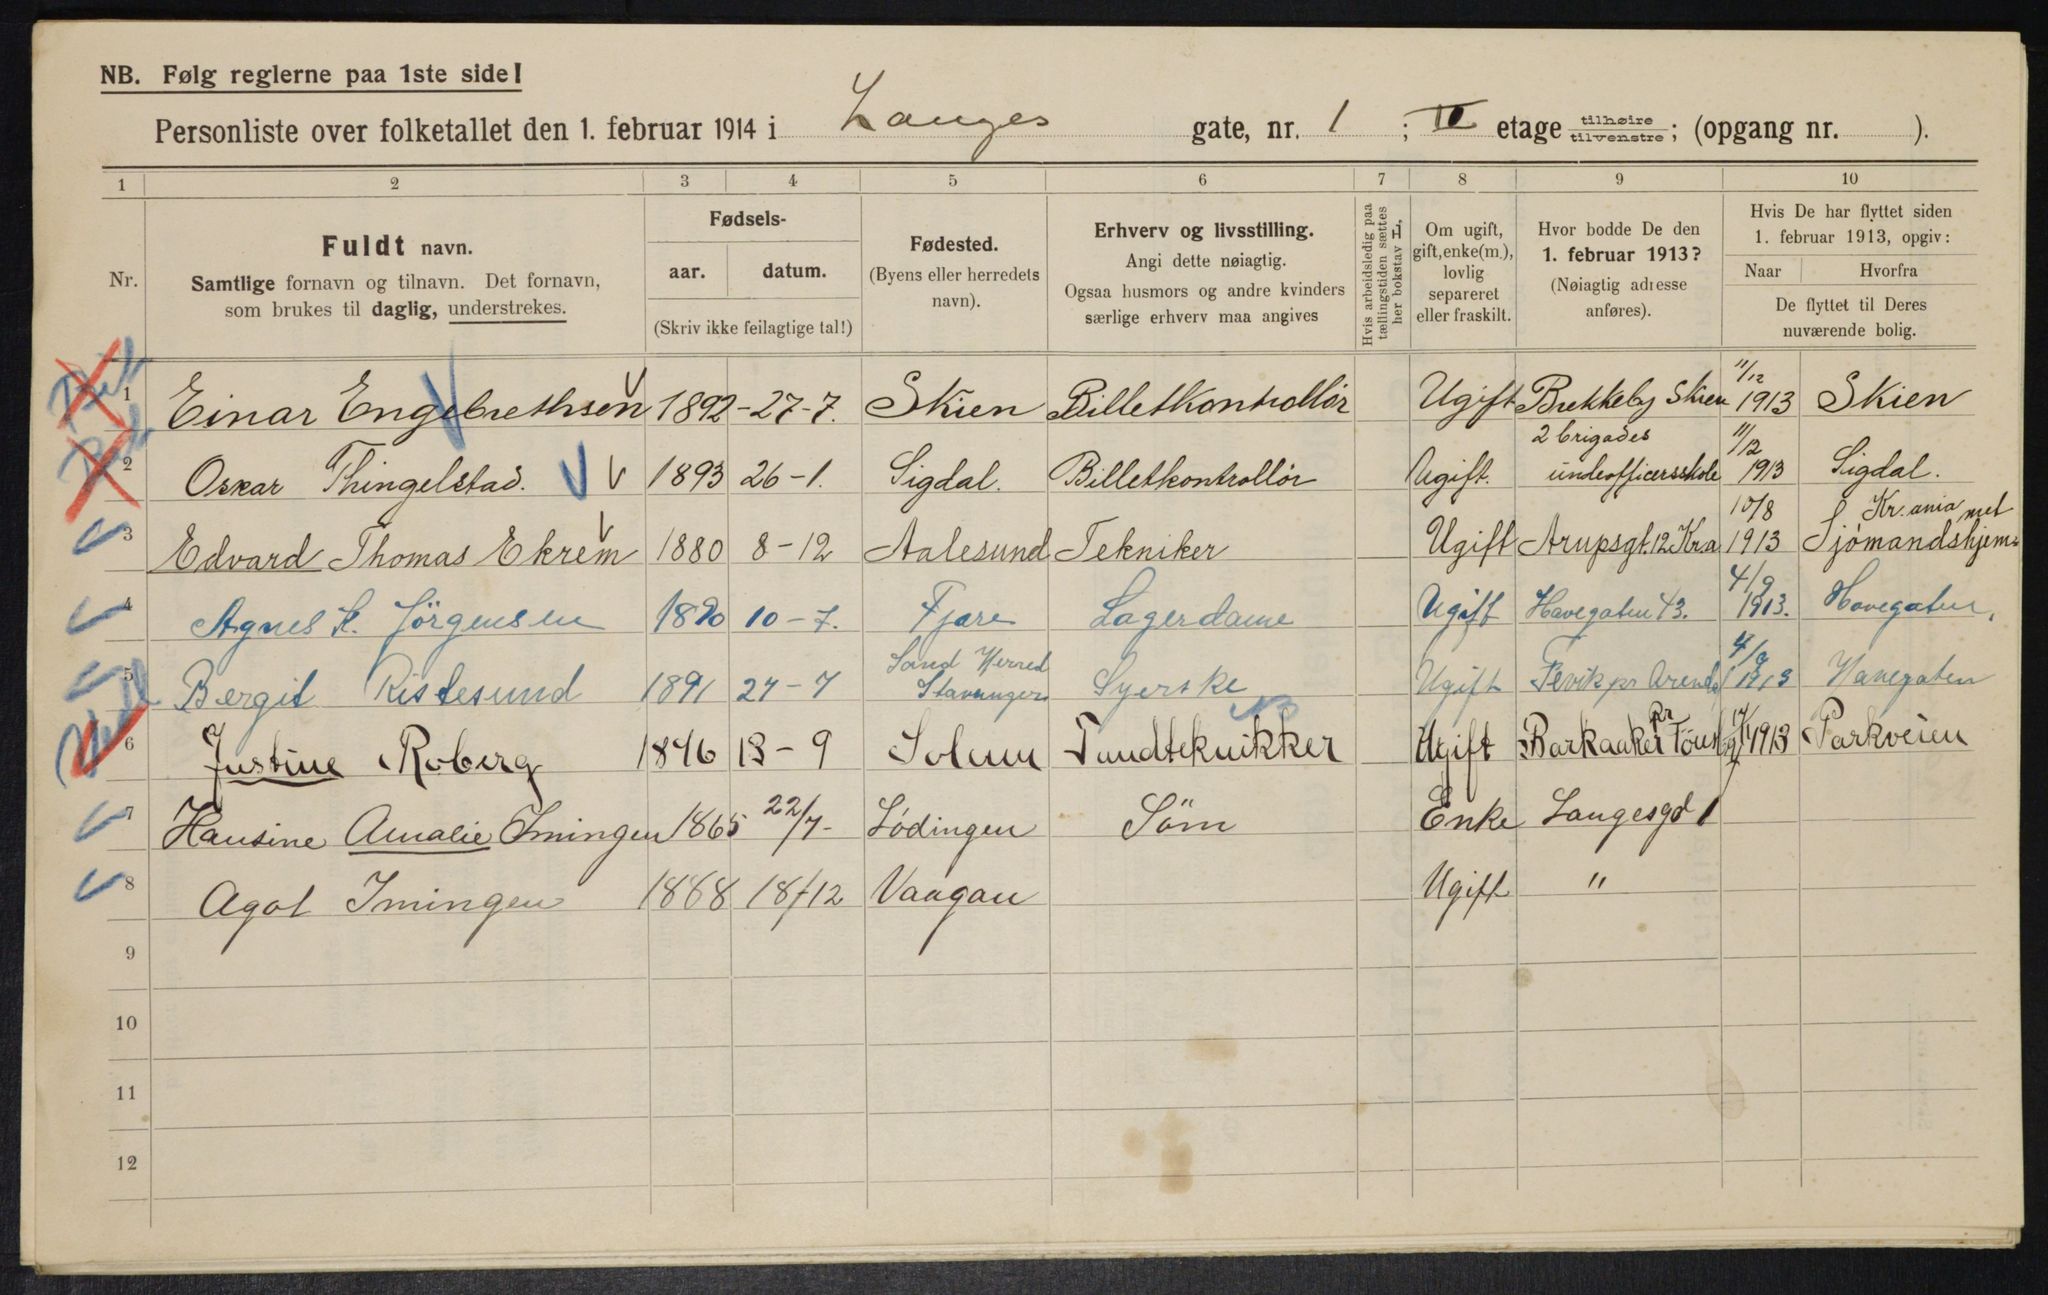 NB. Følg reglerne paa 1ste side!
Personliste over folketallet den 1. februar 1914 i Langes gate, nr. 1 ; II etage tilhøire tilvenstre ; (opgang nr. ).
1 2 3 4 5 6 7 8 9 10
Nr.
Fuldt navn.
Samtlige fornavn og tilnavn. Det fornavn,
som brukes til daglig, understrekes.
Fødsels-
aar. datum.
(Skriv ikke feilagtige tal!)
Fødested.
(Byens eller herredets
navn).
Erhverv og livsstilling.
Angi dette nøiagtig.
Ogsaa husmors og andre kvinders
særlige erhverv maa angives
Hvis arbeidsledig paa
tællingstiden sættes
her bokstav L,
Om ugift,
gift, enke(m.),
lovlig
separeret
eller fraskilt.
Hvor bodde De den
1. februar 1913?
(Nøiagtig adresse
anføres).
Hvis De har flyttet siden
1. februar 1913, opgiv:
Naar Hvorfra
De flyttet til Deres
nuværende bolig.
1 Einar Engebrethsen 1892 - 27-7. Skien Billetkontrollör Ugift Brekkeby Skien 11/12 1913 Skien
2 Oskar Thingelstad. 1893 26-1. Sigdal. Billetkontrollör Ugift. 2 brigades underofficersskole 11/12 1913 Sigdal.
3 Edvard Thomas Ekrem 1880 8-12 Aalesund Tekniker Ugift Arupsgt. 12 Kra 10/8 1913 Kr.ania Sjömandshjem
4 Agnes K. Jörgensen 1890 10-7. Fjære Lagerdame Ugift Havegaten 43. 4/9 1913. Havegaten.
5 Bergit Ristesund 1891 27-7 Sand Herred Stavanger Syerske Ugift Fevik pr Arendal 4/9 1913 Havegaten
6 Justine Roberg 1846 13-9 Solum Tandteknikker Ugift Barkaaker pr 1913 Parkveien
7 Hansine Amalie Imingen 1865 22/7- Lödingen Söm Enke Langesgd 1
8 Agot Imingen 1888 18/12 Vaagan Ugift "
9
10
11
12